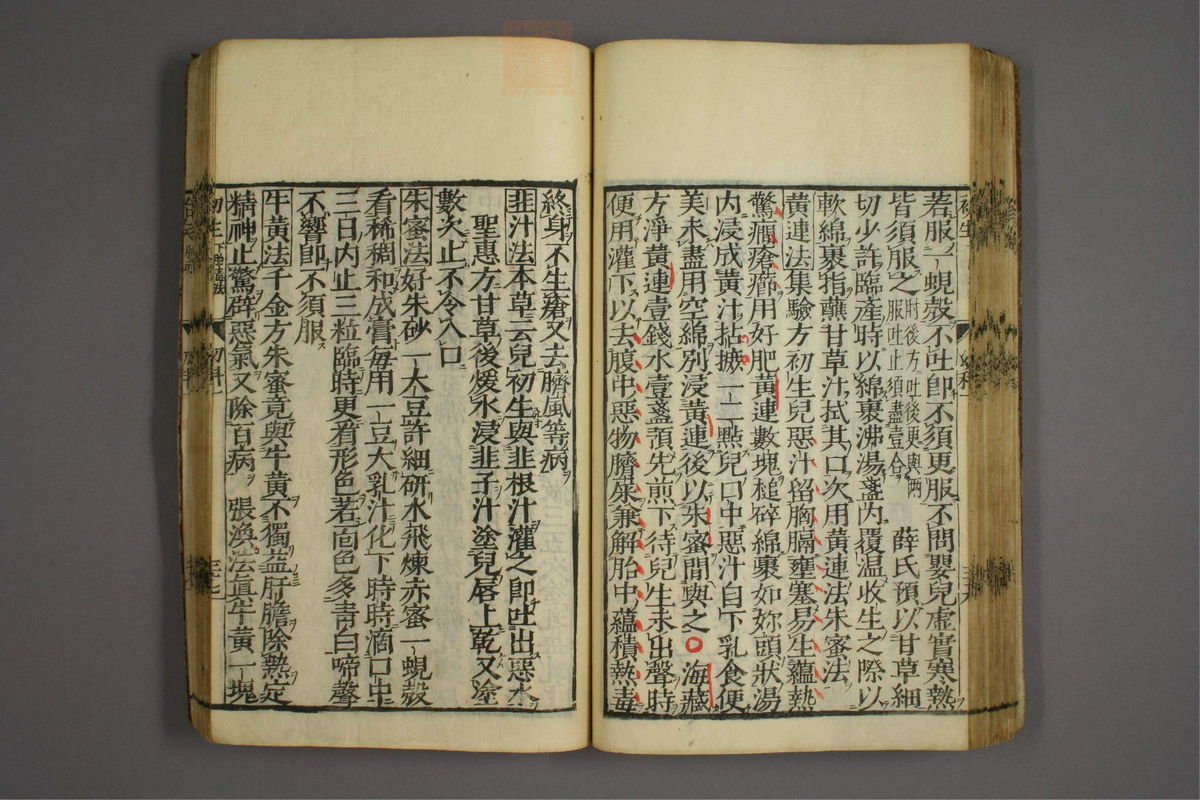 若服一蜆殼不吐即不須更服不問嬰兒虛實寒熱
皆須服之肘後方吐後更與兩服吐止須盡壹合 薛氏預以甘草細
切少許臨產時以綿裹沸湯盞內覆温收生之際以
軟綿裹指蘸甘草汁拭其口次用黃連法朱蜜法
黃連法集驗方初生兒惡汁留胸膈壅塞易生蘊熱
驚癇瘡癤用好肥黃連數塊槌碎綿裹如妳頭狀湯
內浸成黃汁拈摝一二㸃兒口中惡汁自下乳食便
美未盡用空綿別浸黃連後以朱蜜間與之○海藏
方淨黃連壹錢水壹盞預先煎下待兒生未出聲時
便用灌下以去腹中惡物臍屎兼解胎中蘊積熱毒
終身不生瘡又去臍風等病
韭汁法本草云兒初生與韭根汁灌之即吐出惡水
聖惠方甘草後煖水浸韭子汁塗兒唇上乾又塗
數次止不令入口
朱蜜法好朱砂一大豆許細研水飛煉赤蜜一蜆殼
看稀稠和成膏每用一豆大乳汁化下時時滴口中
三日內止三粒臨時更看形色若面色多青白啼聲
不響即不須服
牛黃法千金方朱蜜竟與牛黃不獨益肝膽除熱定
精神止驚辟惡氣又除百病 張渙法真牛黃一塊